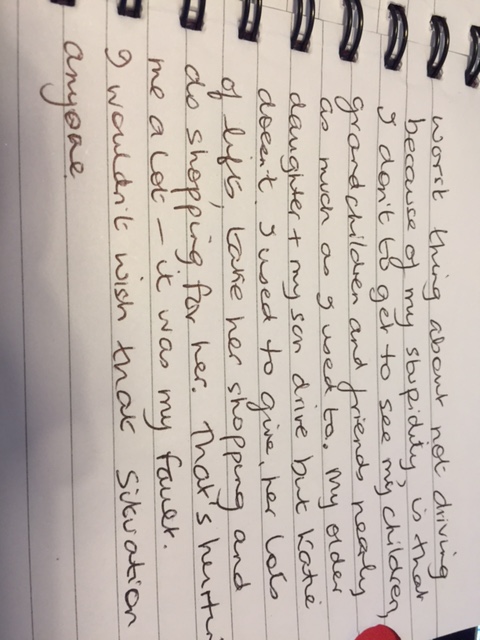 worst thing about not driving
because of my stupidity, is that
I don't to get to see my children,
grandchildren and friends nearly
as much as I used to. My older
daughter + my son drive but Katie
doesn't. I used to give her lots
of lifts, take her shopping and
do shopping for her. That's hurti
me a lot – it was my fault.
I wouldn't wish that situation
anyone.